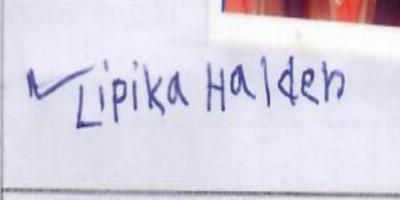 Lipika Halder